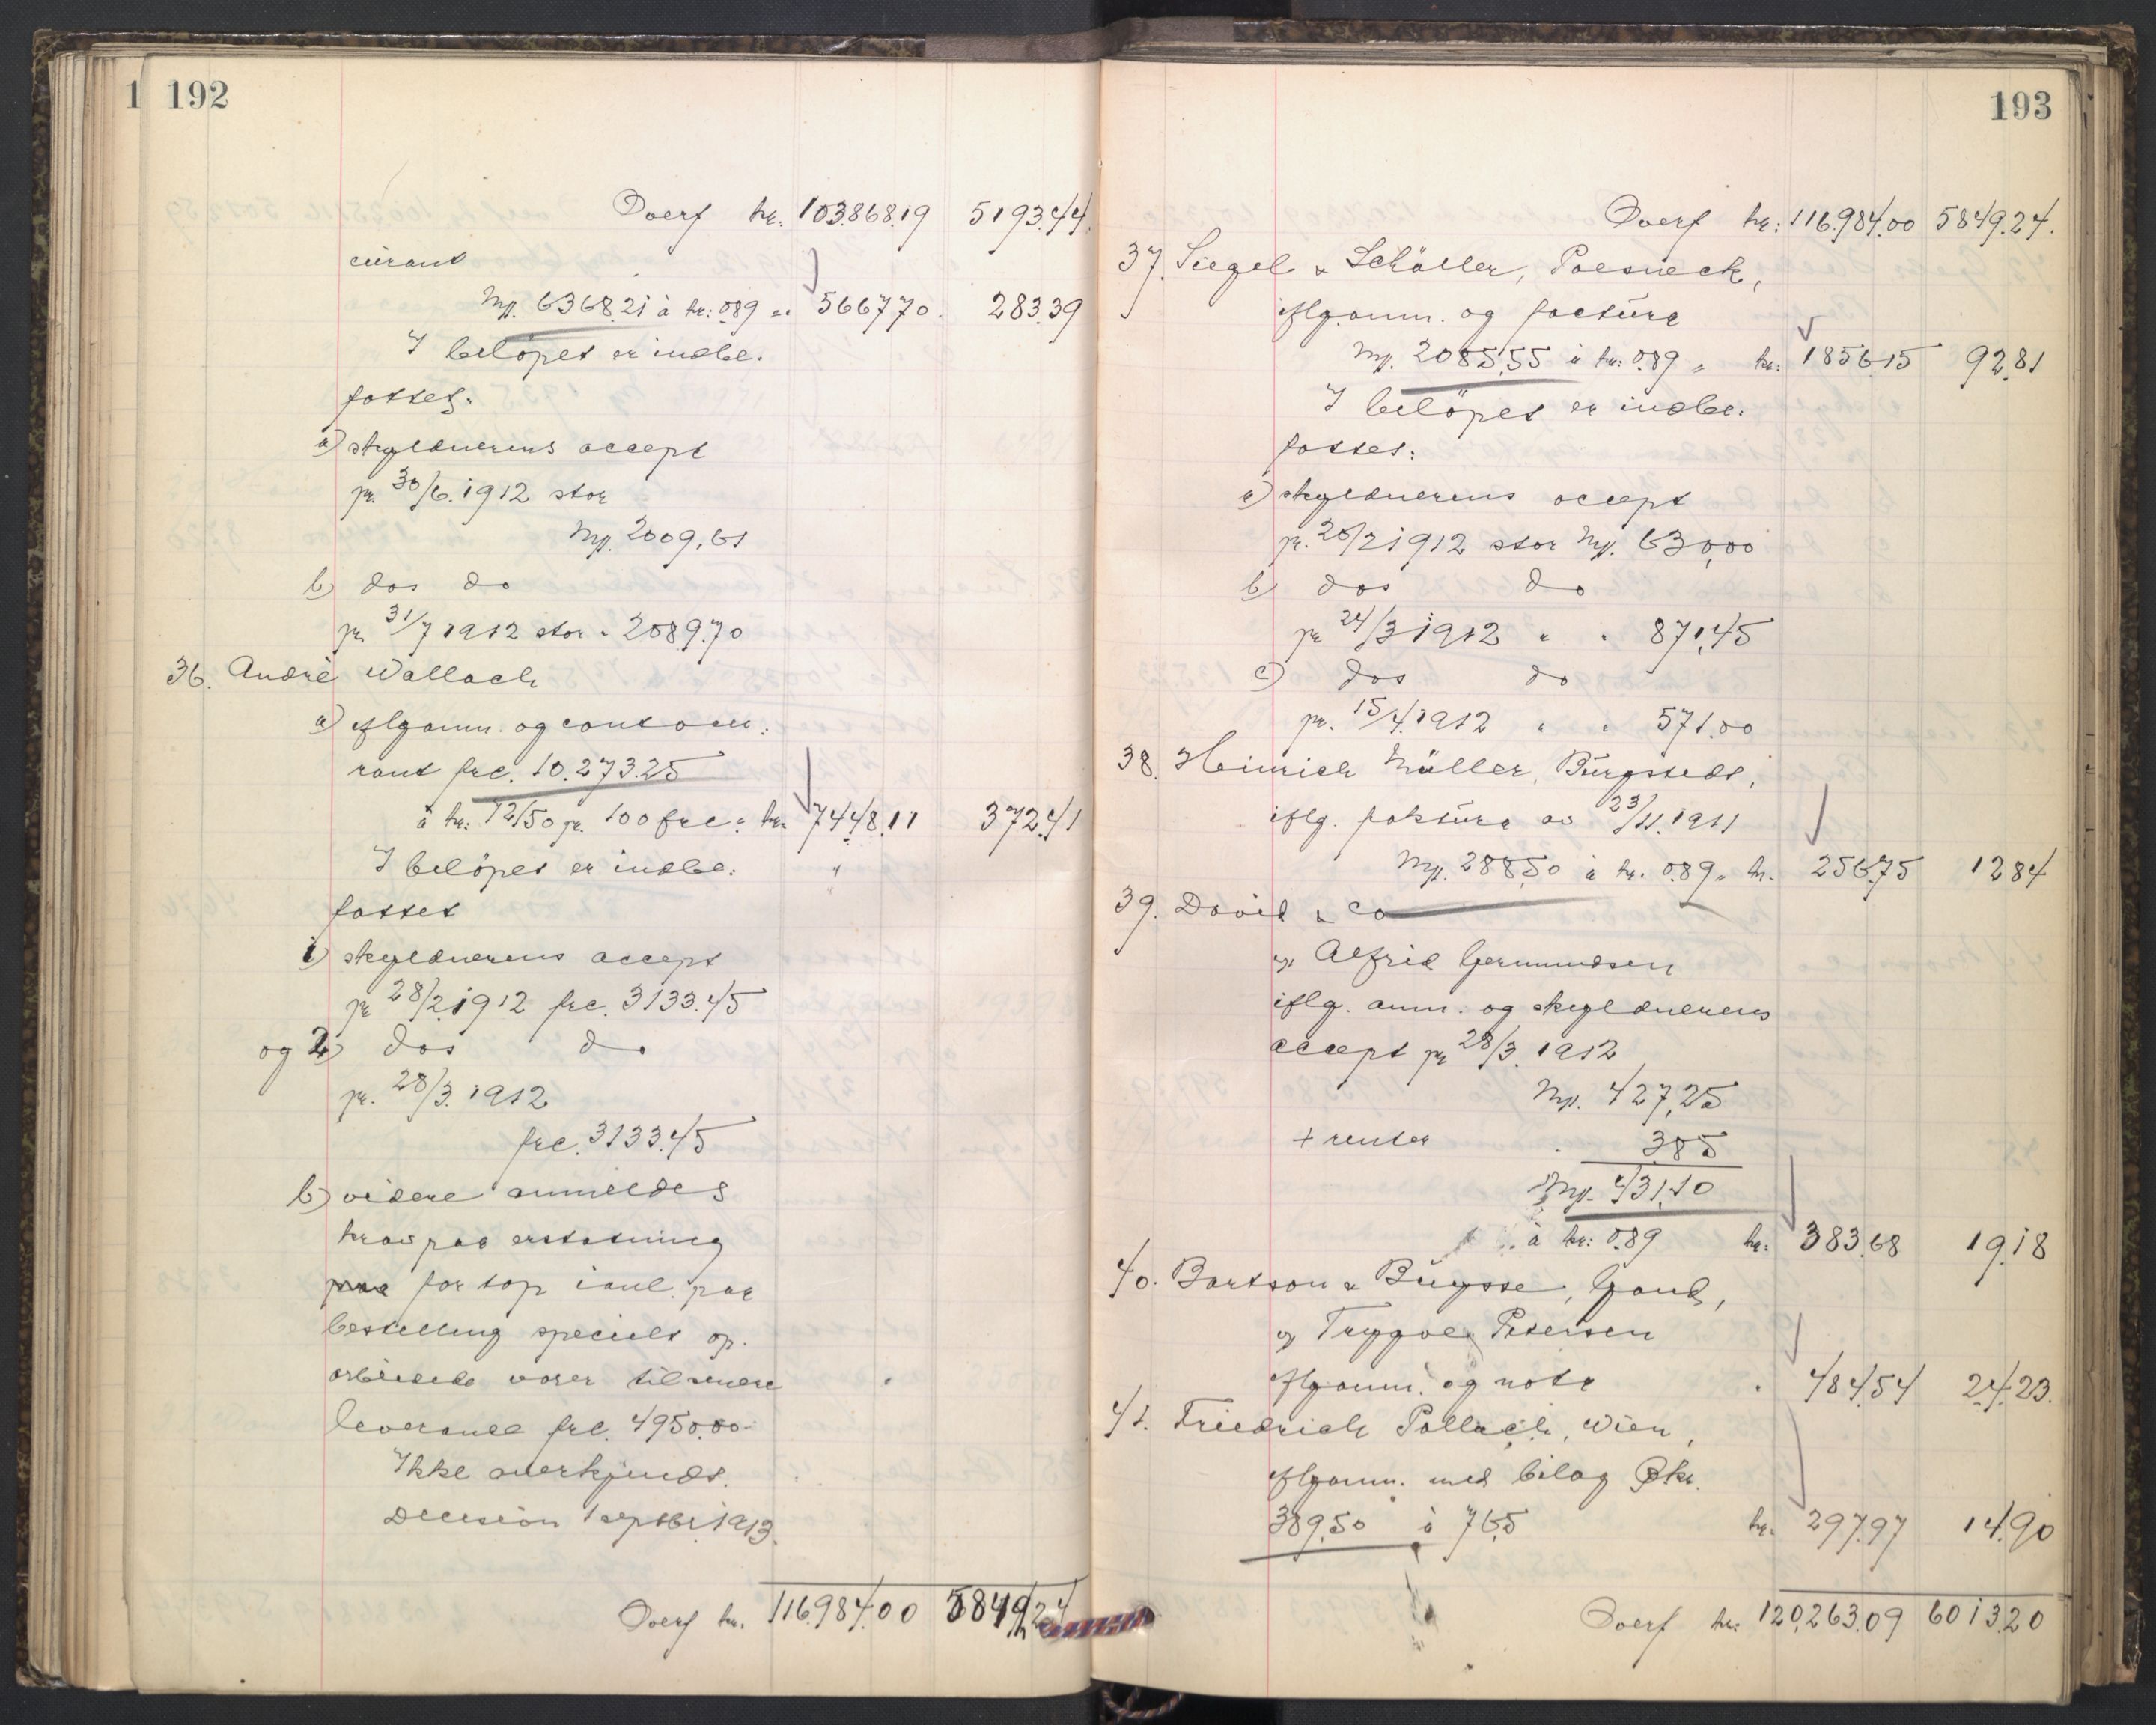 1 192
Overf kr: 103.868.19 5193.44.
curant
Mk. 6368.21 à kr: 0.89 = 5667.70. 283.39
I beløpet er indbe-
fattet:
a) skyldnerens accept
pr. 30/6.1912 stor
Mk. 2009,61
b) dos do
pr 31/7 1912 stor " 2089.70
36. André Wallach
a) iflg anm. og contocu-
rant frc. 10.273.25
à kr: 72/50 pr. 100 frc = kr. 7448.11 372.41
I beløpet er indbe-
fattet
1) skyldnerens accept
pr 28/2.1912 frc. 3133.45
og 2) dos do
pr. 28/3.1912
frc. 3133.45
b) videre anmeldes
krav paa erstatning
paa for tap i anl. paa
bestilling specielt op-
arbeidede varer til senere
leverance frc. 4950.00
Ikke anerkjendt.
Decision 1 septbr. 1913.
Overf kr. 116.984.00 5849.24
193
Overf kr: 116.984.00 5849.24.
37. Siegel & Schöller, Poesneck,
iflg anm. og factura
Mk. 2085.55 à kr: 0.89 = kr: 1856.15 92.81
I beløpet er indbe-
fattet:
a) skyldnerens accept
pr. 20/2 1912 stor Mk. 630,00
b) dos do
pr 24/3 1912 " " 871,45
c) dos do
pr. 15/4.1912 " " 571.00
38. Heinrich Müller, Burgstedt,
iflg. faktura av 23/11.1911
Mk. 288.50 à kr. 0.89 = kr. 256.75 12 84
39. David & Co
v/ Alfred Germundsen
iflg. anm. og skyldnerens
accept pr 28/3.1912
Mk. 427,25
+ renter " 3.85
Mk. 431,10
à kr: 0.89 kr: 383.68 19.18
40. Bartson & Buysse, Gand,
v/ Trygve Petersen
iflg anm. og nota " 484.54 24.23.
41. Friedrich Pollack, Wien,
iflg anm. med bilag Økr.
389.50 à 76,5 kr. 297.97 14.90
Overf kr: 120,263.09 6013.20